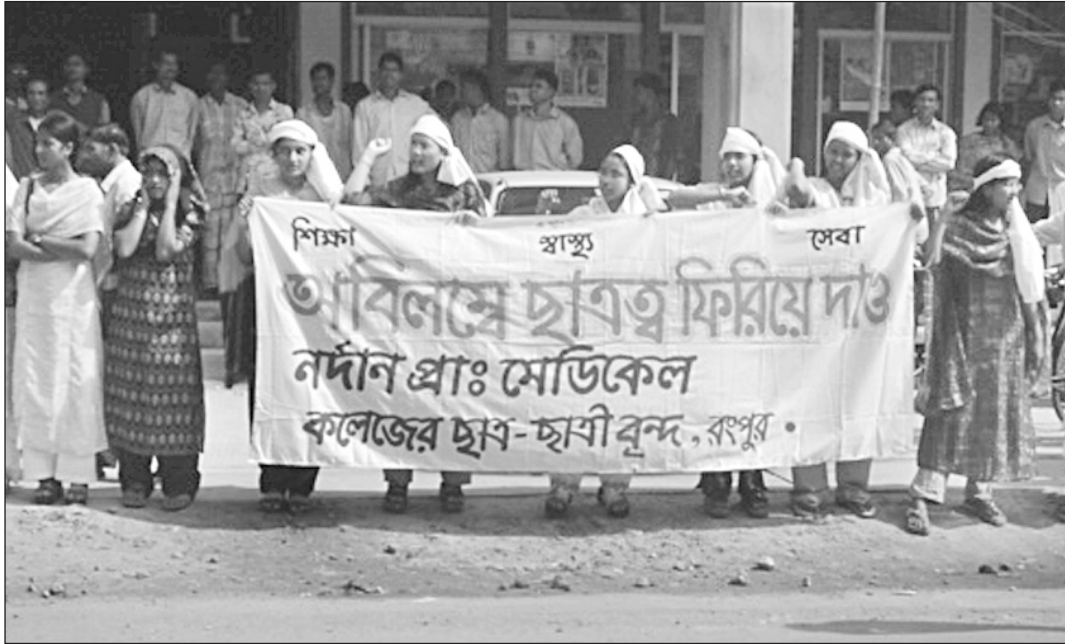 শিক্ষা স্বাস্থ্য সেবা
অবিলম্বে ছাত্রত্ব ফিরিয়ে দাও
নর্দান প্রাঃ মেডিকেল
কলেজের ছাত্র-ছাত্রী বৃন্দ, রংপুর ·